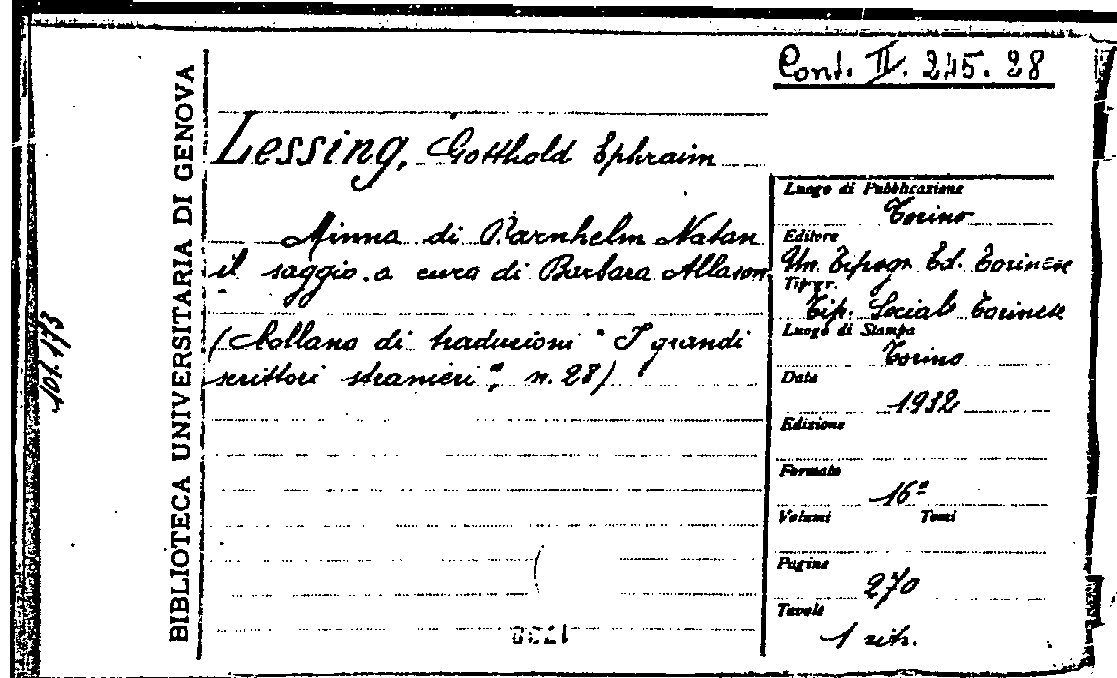 Cont. II. 245. 28
BIBLIOTECA UNIVERSITARIA DI GENOVA
101.173
Lessing, Gotthold Ephraim
Minna di Barnhelm Natan
il saggio. a cura di Barbara Allason
(Collana di traduzioni "I grandi
scrittori stranieri", n. 28)
Luogo di Pubblicazione
Torino
Editore
Un. Tipogr. Ed. Torinese
Tipogr.
Tip. Sociale Torinese
Luogo di Stampa
Torino
Data
1932
Edizione
Formato
16º
Volumi Tomi
Pagine
270
Tavole
1 ritr.